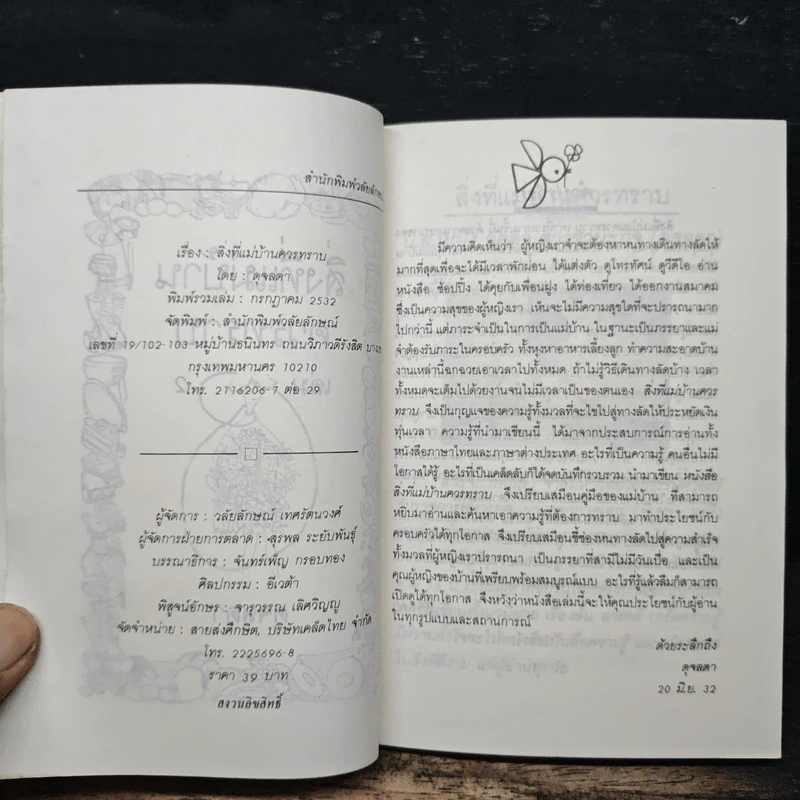 สำนักพิมพ์วลัยลักษณ์
เรื่อง : สิ่งที่แม่บ้านควรทราบ
โดย : ดุจลดา
พิมพ์รวมเล่ม : กรกฎาคม 2532
จัดพิมพ์ : สำนักพิมพ์วลัยลักษณ์
เลขที่ 19/102-103 หมู่บ้านธนินทร ถนนวิภาวดีรังสิต
กรุงเทพมหานคร 10210
โทร. 2116206-7 ต่อ 29
ผู้จัดการ : วลัยลักษณ์ เทศรัตนวงศ์
ผู้จัดการฝ่ายการตลาด : สุรพล ระยับพันธุ์
บรรณาธิการ : จันทร์เพ็ญ กรอบทอง
ศิลปกรรม : อีเวต้า
พิสูจน์อักษร : จารุวรรณ เลิศวิญญู
จัดจำหน่าย : สายส่งศึกษิต, บริษัทเคล็ดไทย จำกัด
โทร. 2225696-8
ราคา 39 บาท
สงวนลิขสิทธิ์
สิ่งที่แม่บ้านควรทราบ
มีความคิดเห็นว่า ผู้หญิงเราจำจะต้องหาหนทางเดินทางลัดให้
มากที่สุดเพื่อจะได้มีเวลาพักผ่อน ได้แต่งตัว ดูโทรทัศน์ ดูวีดีโอ อ่าน
หนังสือ ช้อปปิ้ง ได้คุยกับเพื่อนฝูง ได้ท่องเที่ยว ได้ออกงานสมาคม
ซึ่งเป็นความสุขของผู้หญิงเรา เห็นจะไม่มีความสุขใดที่จะปรารถนามาก
ไปกว่านี้ แต่ภาระจำเป็นในการเป็นแม่บ้าน ในฐานะเป็นภรรยาและแม่
จำต้องรับภาระในครอบครัว ทั้งหุงหาอาหารเลี้ยงลูก ทำความสะอาดบ้าน
งานเหล่านี้ฉกฉวยเอาเวลาไปทั้งหมด ถ้าไม่รู้วิธีเดินทางลัดบ้าง เวลา
ทั้งหมดจะเต็มไปด้วยงานจนไม่มีเวลาเป็นของตนเอง สิ่งที่แม่บ้านควร
ทราบ จึงเป็นกุญแจของความรู้ทั้งมวลที่จะไขไปสู่ทางลัดให้ประหยัดเงิน
ทุ่นเวลา ความรู้ที่นำมาเขียนนี้ ได้มาจากประสบการณ์การอ่านทั้ง
หนังสือภาษาไทยและภาษาต่างประเทศ อะไรที่เป็นความรู้ คนอื่นไม่มี
โอกาสได้รู้ อะไรที่เป็นเคล็ดลับก็ได้จดบันทึกรวบรวม นำมาเขียน หนังสือ
สิ่งที่แม่บ้านควรทราบ จึงเปรียบเสมือนคู่มือของแม่บ้าน ที่สามารถ
หยิบมาอ่านและค้นหาเอาความรู้ที่ต้องการทราบ มาทำประโยชน์กับ
ครอบครัวได้ทุกโอกาส จึงเปรียบเสมือนชี้ช่องหนทางลัดไปสู่ความสำเร็จ
ทั้งมวลที่ผู้หญิงเราปรารถนา เป็นภรรยาที่สามีไม่มีวันเบื่อ และเป็น
คุณผู้หญิงของบ้านที่เพรียบพร้อมสมบูรณ์แบบ อะไรที่รู้แล้วลืมก็สามารถ
เปิดดูได้ทุกโอกาส จึงหวังว่าหนังสือเล่มนี้จะให้คุณประโยชน์กับผู้อ่าน
ในทุกรูปแบบและสถานการณ์
ด้วยระลึกถึง
ดุจลดา
20 มิ.ย. 32